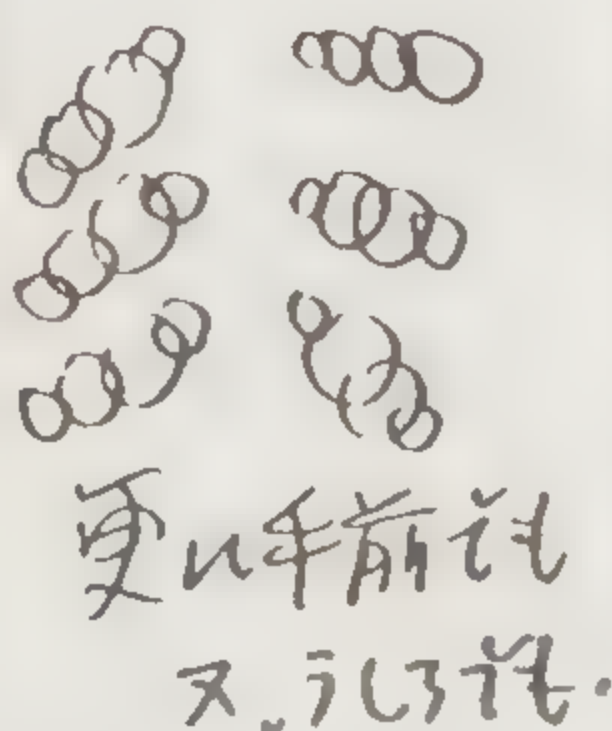 更に手前でも
又、うしろでも.